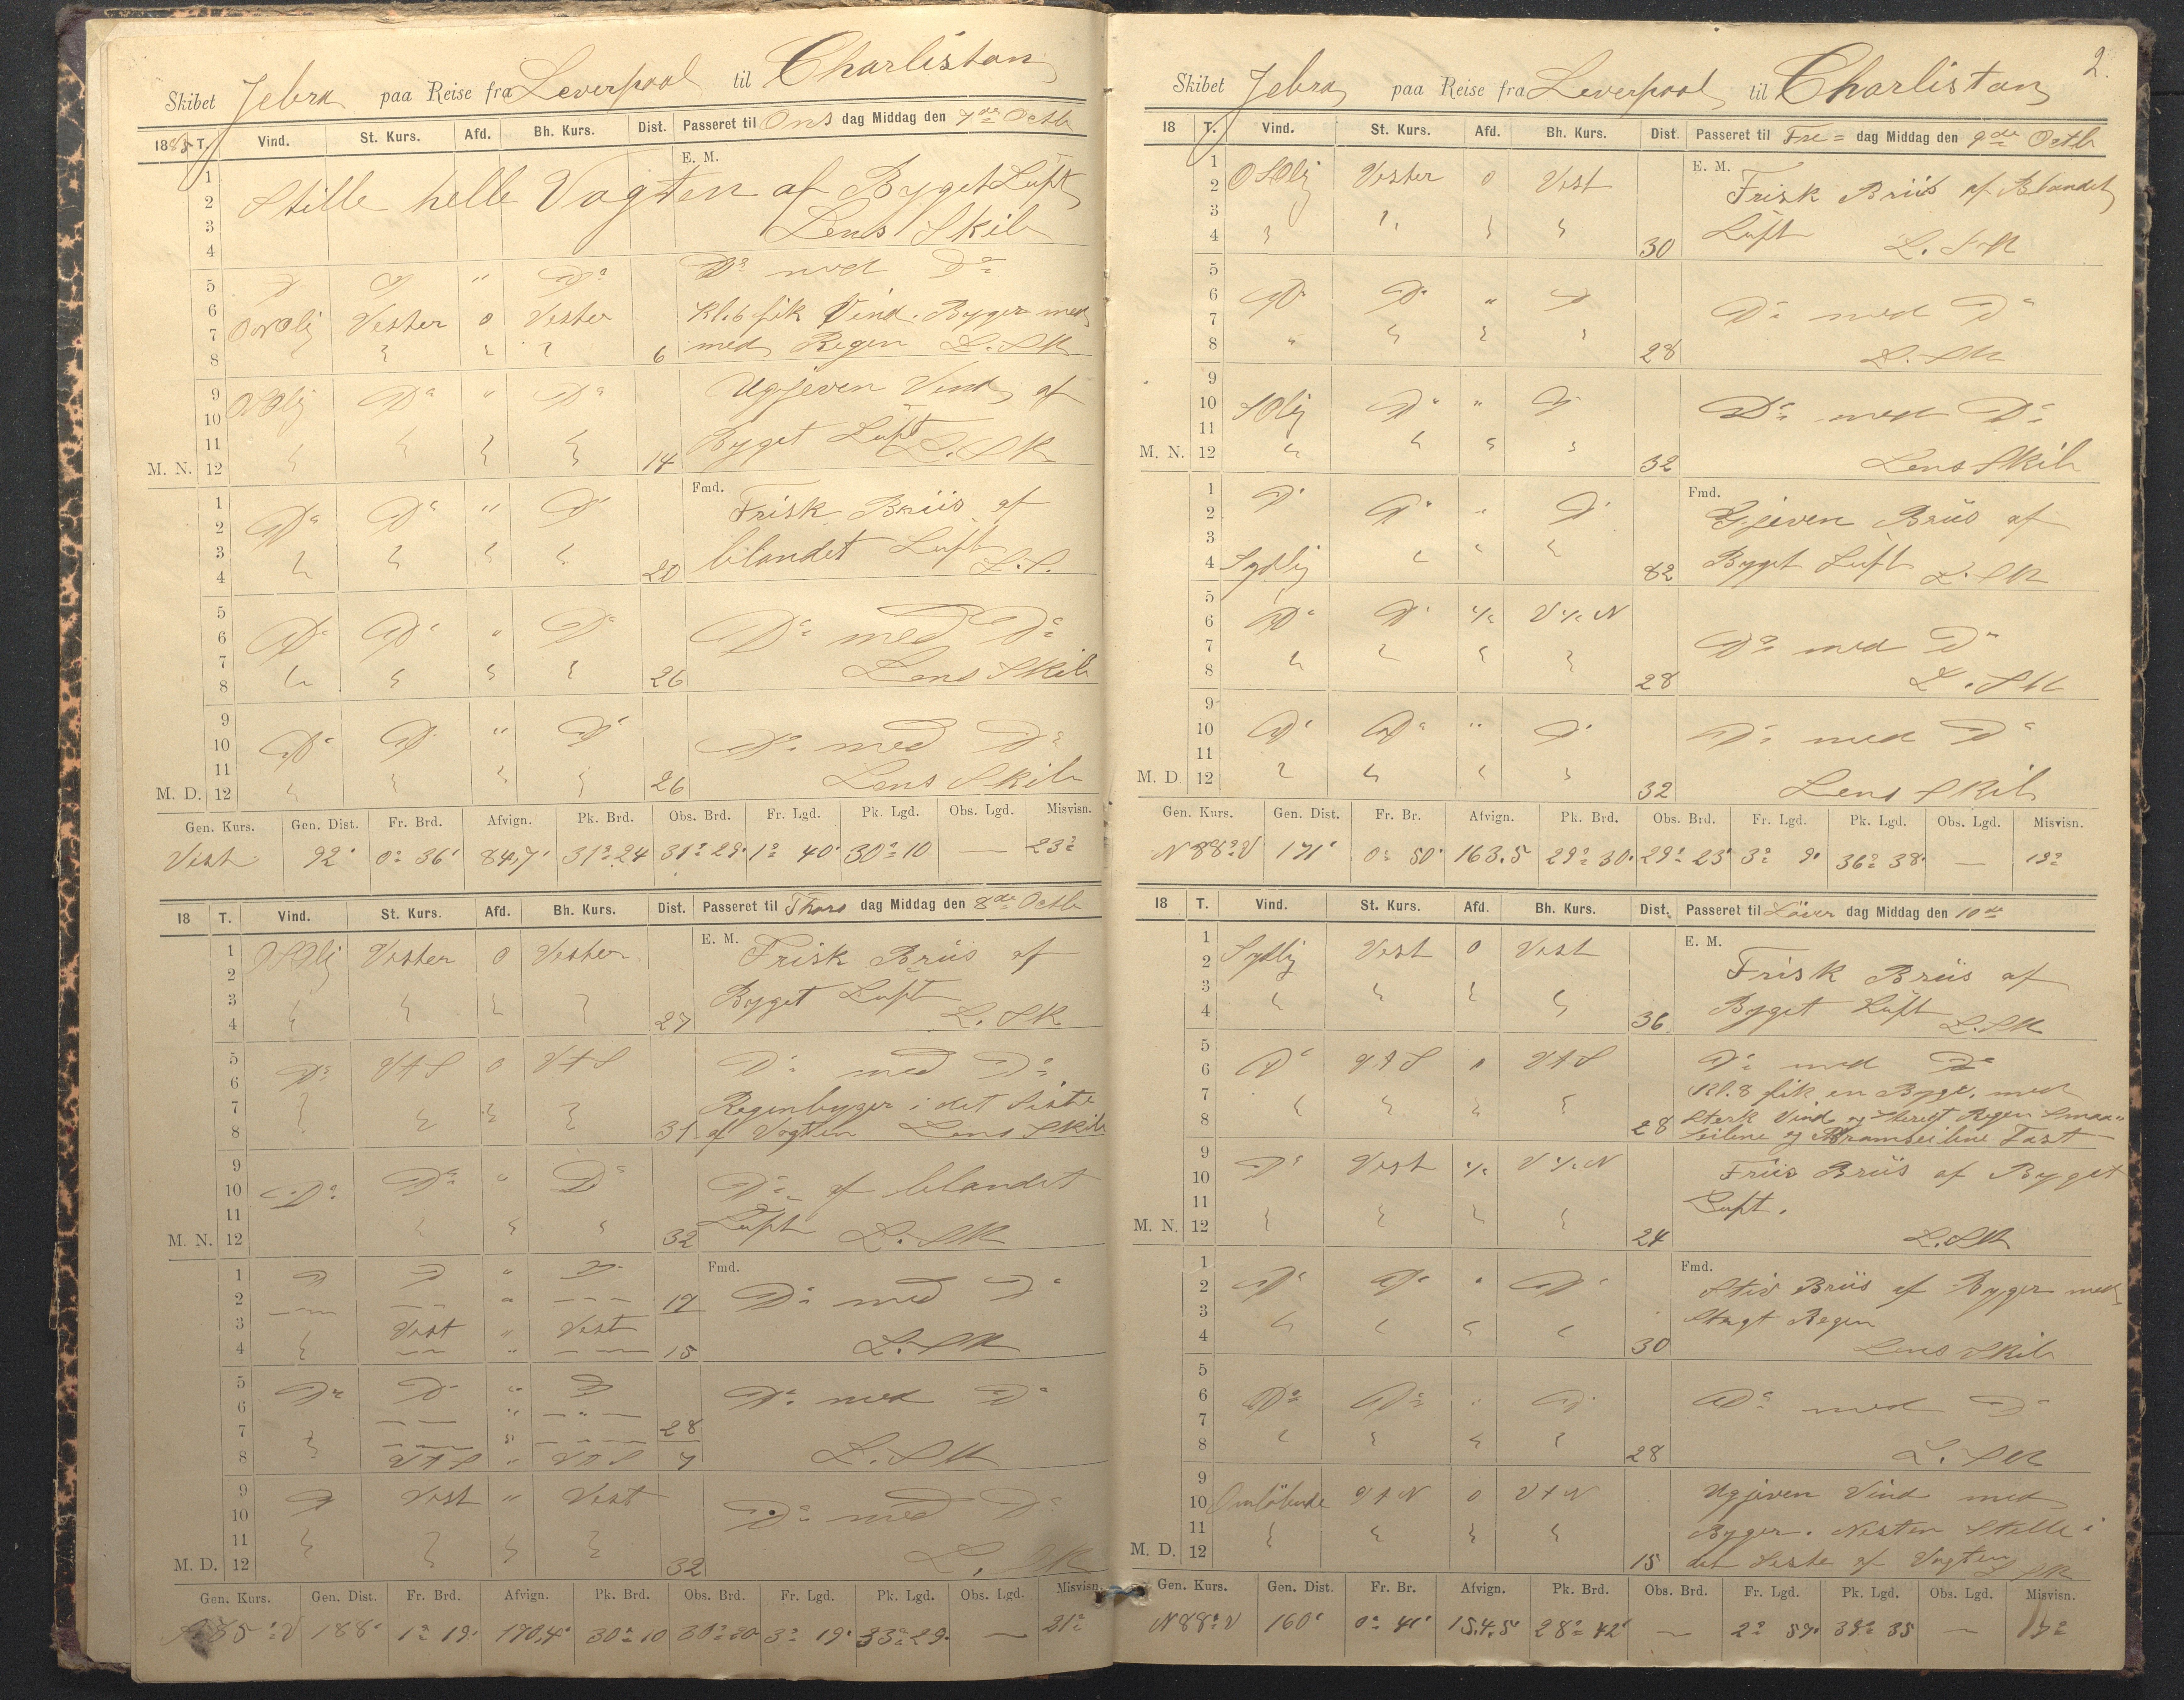 Skibet Jebra paa Reise fra Leverpool til Charlistan
1885 T. Vind. St. Kurs. Afd. Bh. Kurs. Dist. Passeret til Ons dag Middag den 7de Octb
E. M.
1
2 Stille helle Vagten af Byget Luft
3 Lens Skib
4
5 D D " Do Do med Do
6 ONOlij Vester 0 Vester Kl. 6 fik Vind. Byger med
7
8 6 med Regen L. SK
9 OSOlij Do " Do Ugjeven Vind af
10
11 Byget Luft L. SK
M. N. 12 14
Fmd.
1 Frisk Briis af
2 Do Do " D
3 blandet Luft L. S.
4 20
5
6 Do Do " Do Do med Do
7 Lens Skib
8 26
9
10 Do D " D Do med Do
11 Lens Skib
M. D. 12 26
Gen. Kurs. Gen. Dist. Fr. Brd. Afvign. Pk. Brd. Obs. Brd. Fr. Lgd. Pk. Lgd. Obs. Lgd. Misvisn.
Vest 92' 0° 36' 84,7' 31° 24 31° 29' 1° 40' 30° 10 — 23°
18 T. Vind. St. Kurs. Afd. Bh. Kurs. Dist. Passeret til Thors dag Middag den 8de Octb
E. M.
1 OSOlij Vester 0 Vester Frisk Briis af
2
3 Byget Luft
4 27 L. SK
5 Do VtS 0 VtS Do med Do
6
7 Regenbyger i det Siste
8 31 af Vagten Lens Skib
9
10 Do Do " Do Do af blandet
11 Luft L. SK
M. N. 12 32
Fmd.
1 D D " D
2 — — " — — 17 Do med D
3 Vest " Vest
4 — — " — — 15 L. SK
5 Do D " D
6 — — " — — 28 Do med Do
7 — — " — —
8 VtS " VtS 7 L. SK
9 D Vest " Vest
10 Do med Do
11
M. D. 12 32 L. SK
Gen. Kurs. Gen. Dist. Fr. Brd. Afvign. Pk. Brd. Obs. Brd. Fr. Lgd. Pk. Lgd. Obs. Lgd. Misvisn.
85° V 188' 1° 19' 170,4' 30° 10 30° 20 3° 19' 33° 29' — 21°
2.
Skibet Jebra paa Reise fra Leverpool til Charlistan
18 T. Vind. St. Kurs. Afd. Bh. Kurs. Dist. Passeret til Fre= dag Middag den 9de Octb
E. M.
1
2 OSOlij Vester 0 Vest Frisk Briis af Blandet
3 Luft L. SK
4 30
5
6 Do D " D Do med Do
7
8 28 L. SK
9
10 SOlij Do " D Do med Do
11
M. N. 12 32 Lens Skib
Fmd.
1 D Gjeven Briis af
2 D " D
3
4 Sydlij 82 Byget Luft L. SK
5
6 Do D ¼ V ¼ N
7 Do med Do
8 28 L. SK
9
10 D Do " D Do med Do
11
M. D. 12 32 Lens Skib
Gen. Kurs. Gen. Dist. Fr. Br. Afvign. Pk. Brd. Obs. Brd. Fr. Lgd. Pk. Lgd. Obs. Lgd. Misvisn.
N 88° V 171' 0° 50' 163.5 29° 30' 29° 23' 3° 9' 36° 38' — 19°
18 T. Vind. St. Kurs. Afd. Bh. Kurs. Dist. Passeret til Löver dag Middag den 10de
E. M.
1 Sydlij Vest 0 Vest
2 Frisk Briis af
3
4 36 Byget Luft L. SK
5 Do med Do
6 D VtS 0 VtS
7 Kl. 8 fik en Byge, med
8 28 Sterk Vind og Regen Smaa=
seilene og Bramseilene Fast
9 D Vest ¼ V ¼ N
10 Friis Briis af Byget
11 Luft.
M. N. 12 24 L. SK
Fmd.
1
2 D Do " Do Stiv Briis af Byger med
3 Regen
4 30 Lens Skib
5
6 Do Do " D Do med Do
7
8 28 L. SK
9 Ugjeven Vind med
10 Omlöbende VtN 0 VtN
11 Byger. Nesten Stille i
M. D. 12 15 det Siste af Vagten L SK
Gen. Kurs. Gen. Dist. Fr. Br. Afvign. Pk. Brd. Obs. Brd. Fr. Lgd. Pk. Lgd. Obs. Lgd. Misvisn.
N 88° V 160' 0° 41' 15.4.5' 28° 42' — 2° 57' 39° 35 — 17°